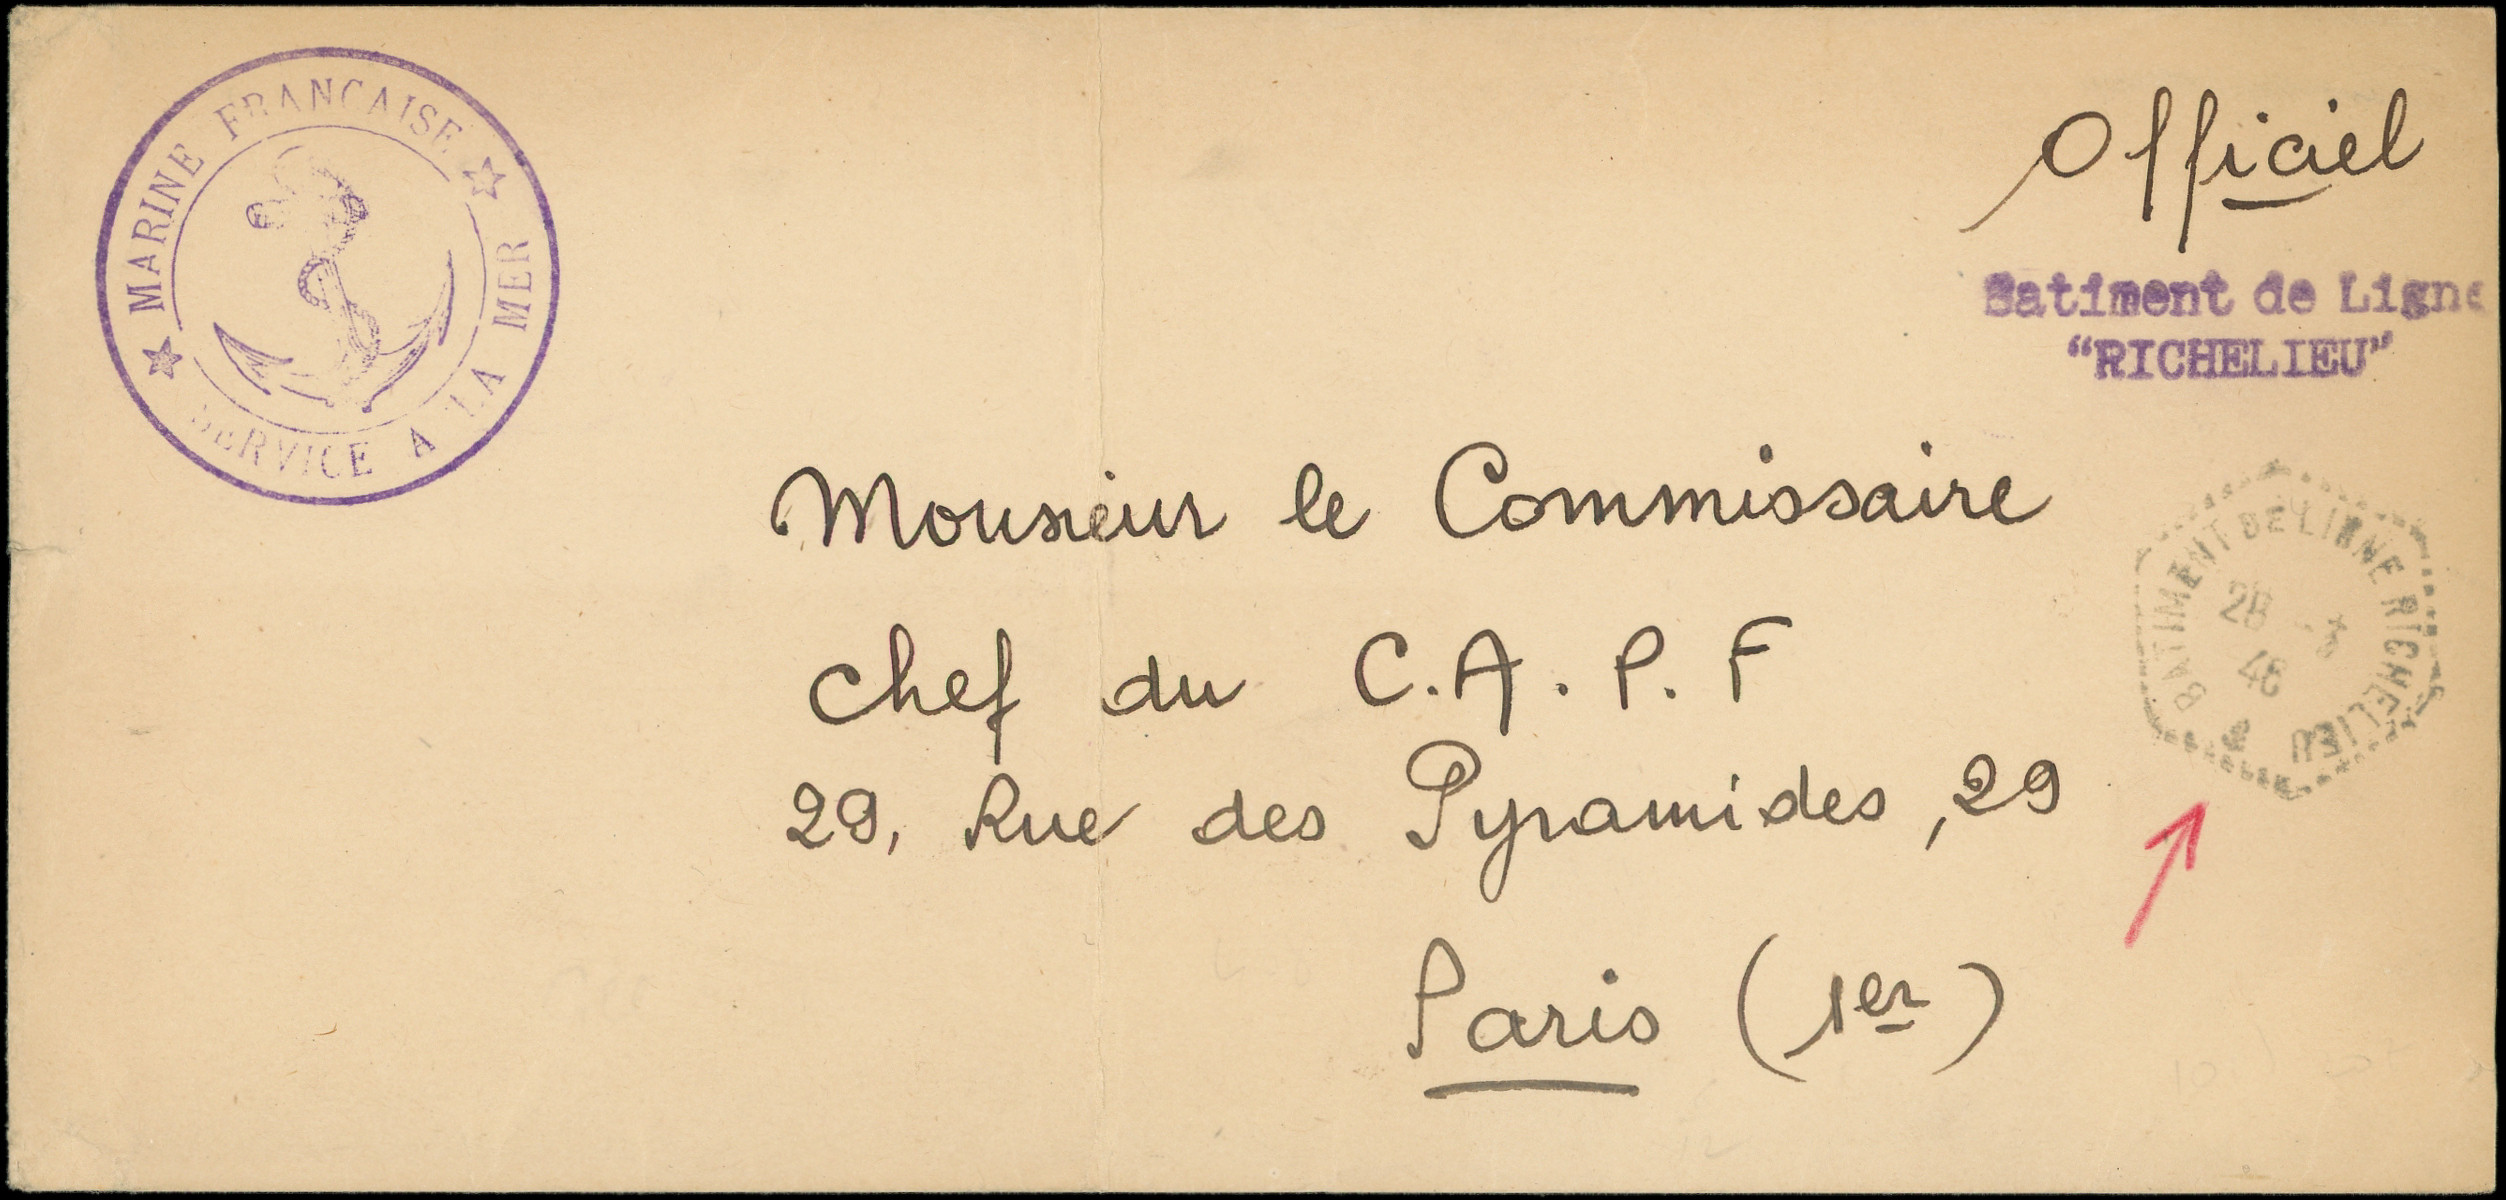 MARINE FRANCAISE
SERVICE A LA MER
Officiel
Batiment de Ligne
"RICHELIEU"
Monsieur le Commissaire
Chef du C.A.P.F
29, Rue des Pyramides, 29
Paris (1er)
BATIMENT DE LIGNE RICHELIEU
46